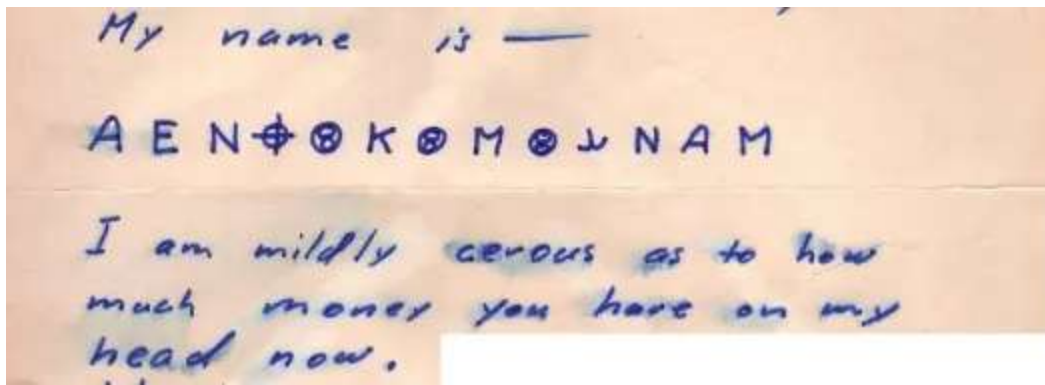 My name is —
A E N ⌖ ⊗ K ⊗ M ⊗ ل N A M
I am mildly cerous as to how
much money you have on my
head now.